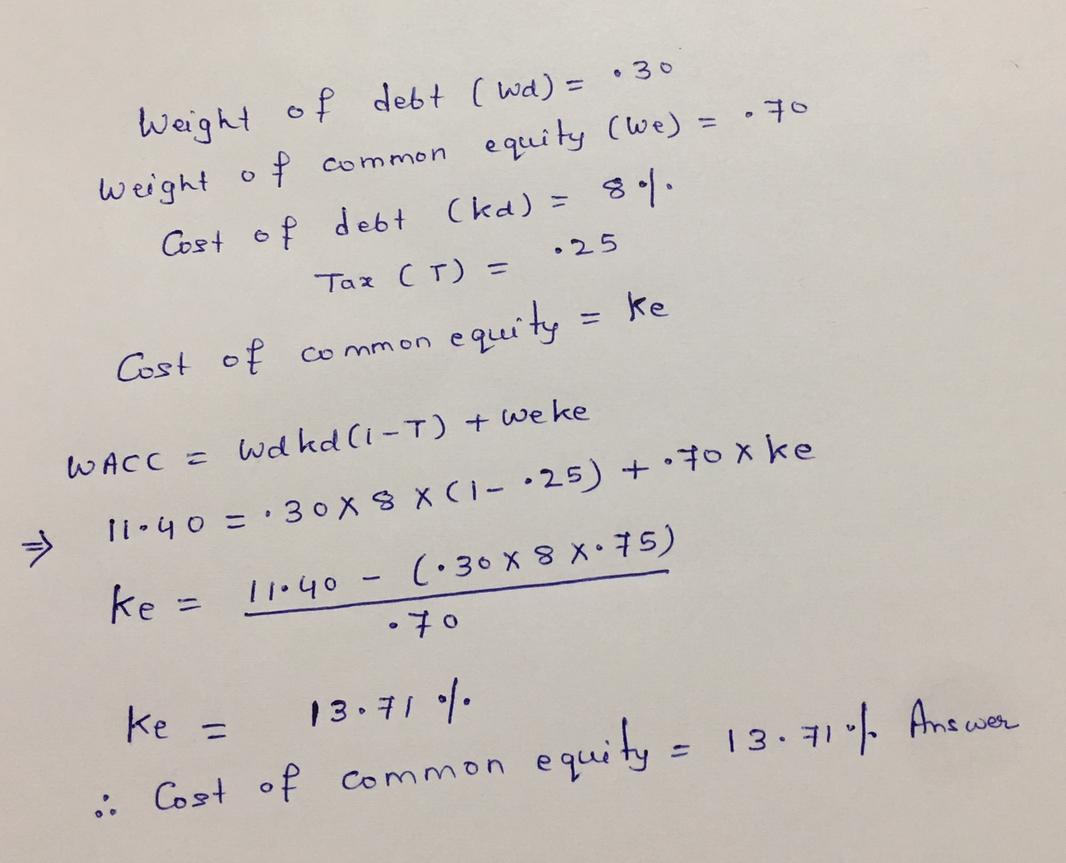 Weight of debt (wd) = .30
Weight of common equity (we) = .70
Cost of debt (kd) = 8%
Tax (T) = .25
Cost of common equity = ke
WACC = wd kd (1-T) + we ke
⇒ 11.40 = .30 x 8 x (1 - .25) + .70 x ke
ke = 11.40 - (.30 x 8 x .75)
.70
ke = 13.71 %
∴ Cost of common equity = 13.71 % Answer